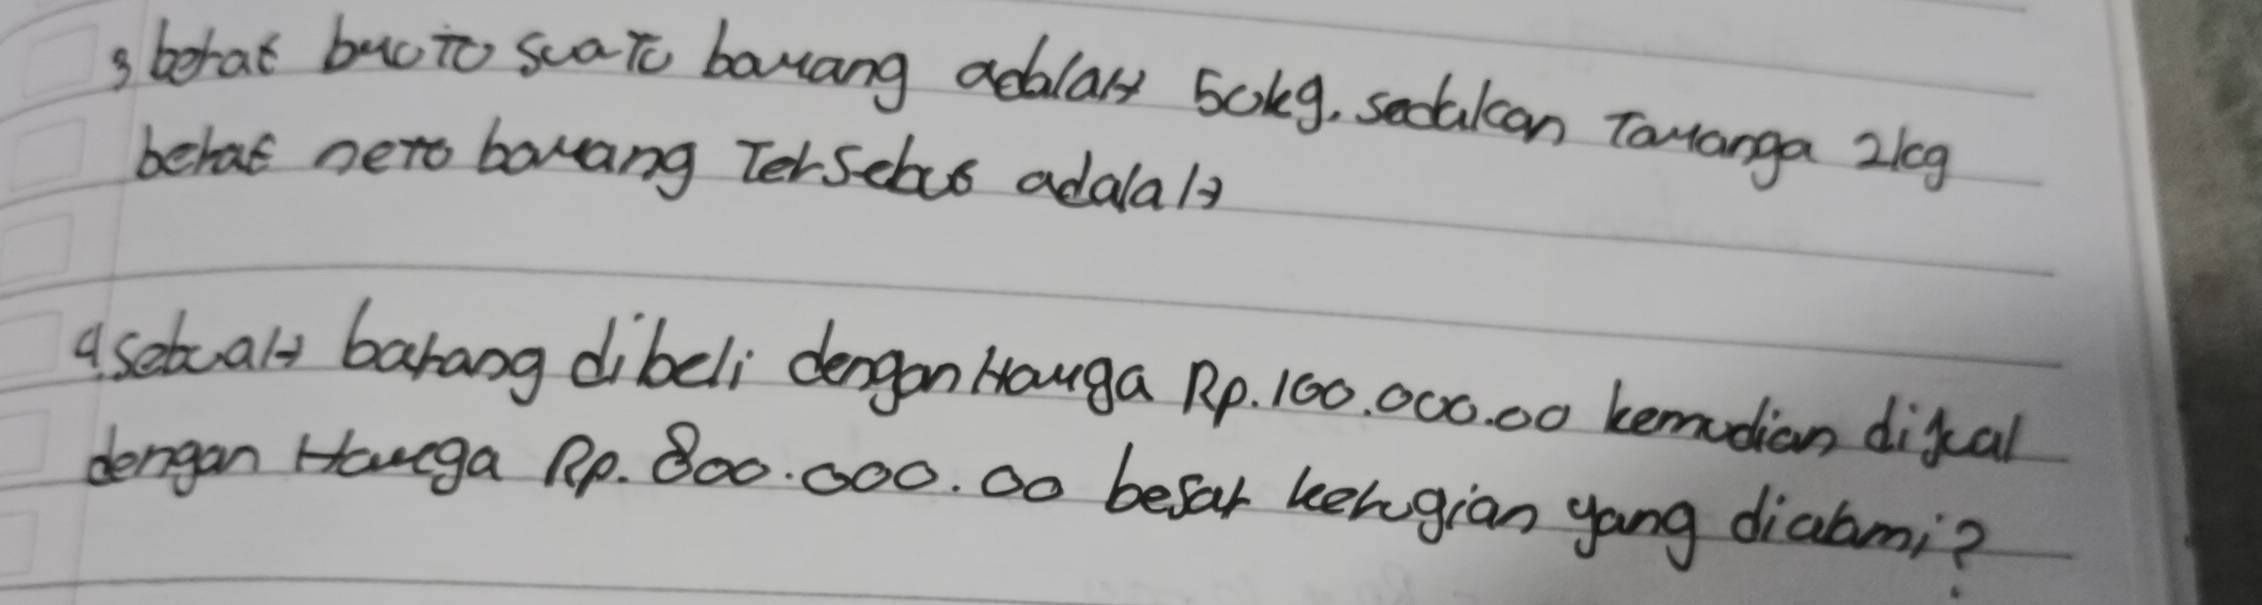 3 berat bruto suatu barang adalah 50kg. sedakan Taranga 2kg
berat neto barang Tersebut adalah
4. sebuah barang dibeli dengan Harga Rp. 100.000.00 kemudian dijual
dengan Harga Rp. 800.000.00 besar kerugian yang dialami?